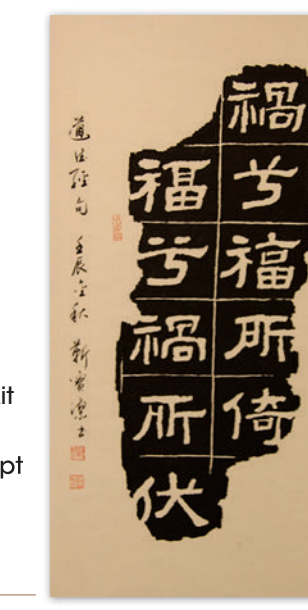 禍兮福所倚
福兮禍所伏
道德經句 壬辰金秋 靳
it
pt